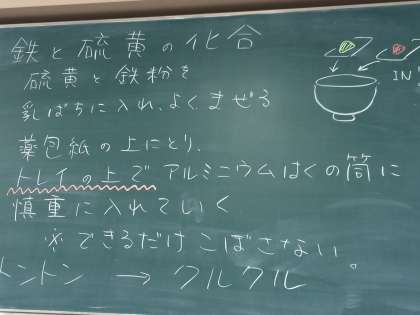 鉄と硫黄の化合
硫黄と鉄粉を
乳ばちに入れ、よくまぜる
IN
薬包紙の上にとり、
トレイの上でアルミニウムはくの筒に
慎重に入れていく
※できるだけこぼさない。
トントン → クルクル